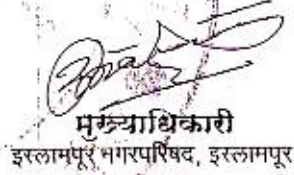 मुख्याधिकारी
इस्लामपूर नगरपरिषद, इस्लामपूर